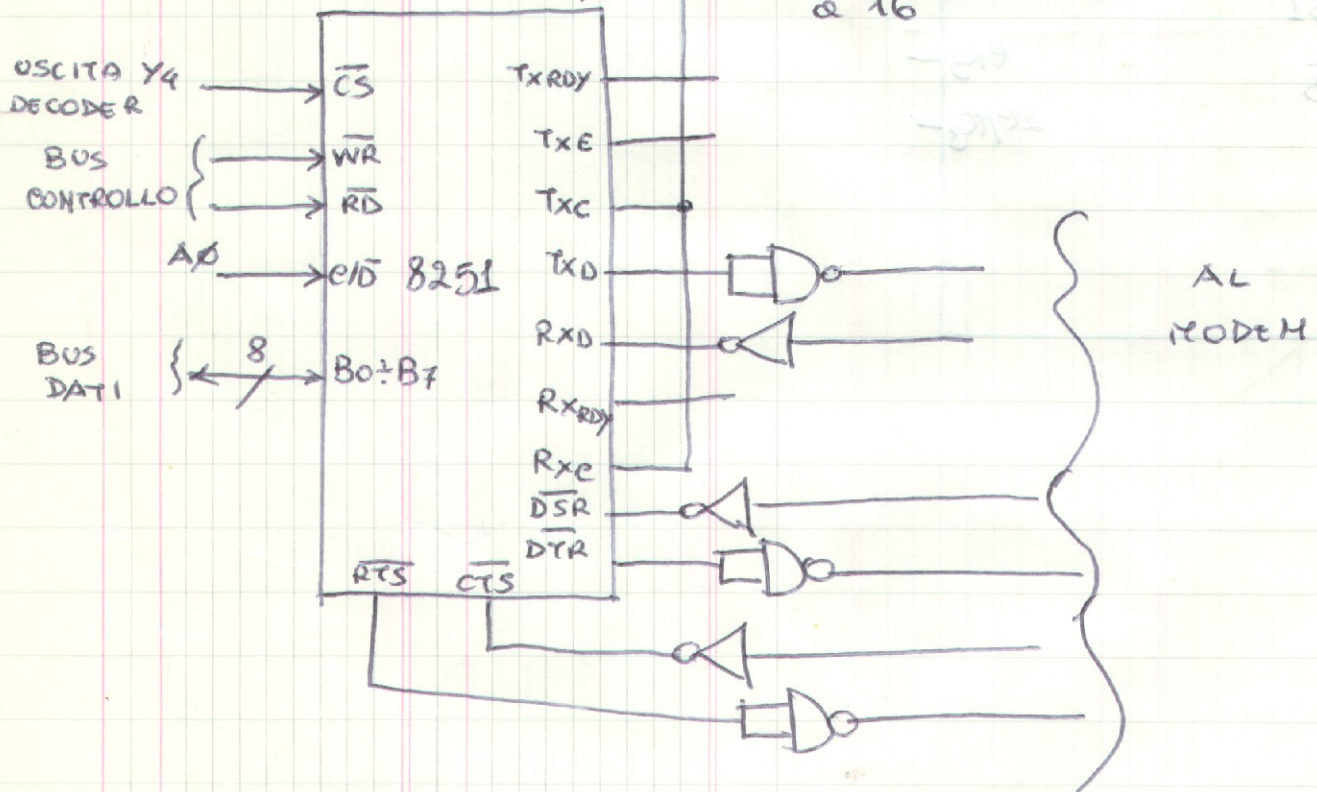 a 16
USCITA Y4
DECODER
BUS
CONTROLLO
A0
BUS
DATI
8
C̅S̅
W̅R̅
R̅D̅
C/D̅
8251
B0÷B7
TXRDY
TXE
TXC
TXD
RXD
RXRDY
RXC
D̅S̅R̅
D̅T̅R̅
R̅T̅S̅
C̅T̅S̅
AL
MODEM